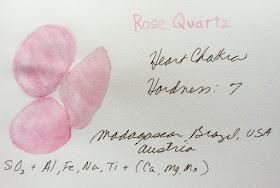 Rose Quartz
Heart Chakra
Hardness: 7
Madagascar, Brazil, USA
Austria
SiO2 + Al, Fe, Na, Ti + (Ca, Mg, Mn)